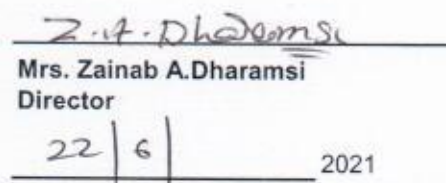 Z.A.Dharamsi
Mrs. Zainab A.Dharamsi
Director
22|6|
2021